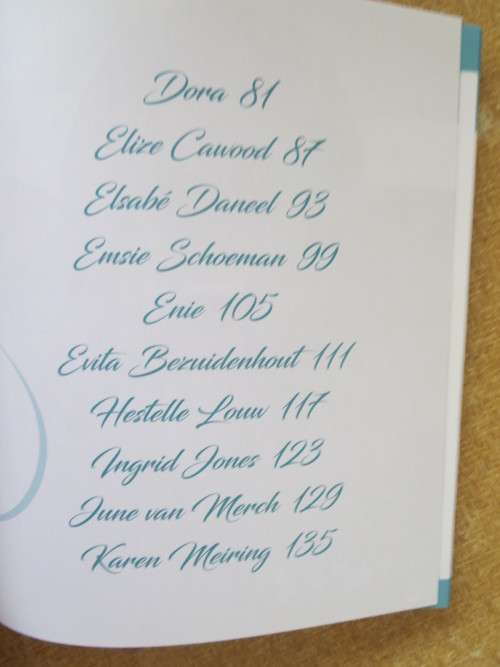 Dora 81
Elize Cawood 87
Elsabé Daneel 93
Emsie Schoeman 99
Enie 105
Evita Bezuidenhout 111
Hestelle Louw 117
Ingrid Jones 123
June van Merch 129
Karen Meiring 135